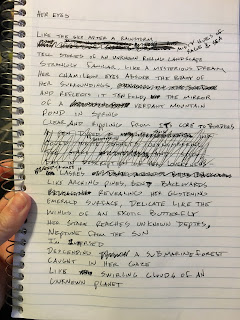 HER EYES
LIKE THE SEA AFTER A RAINSTORM
TELL STORIES OF AN UNKNOWN ROLLING LANDSCAPE
STRANGELY FAMILIAR. LIKE A MYSTERIOUS DREAM,
HER CHAMELEON EYES ABSORB THE BEAUTY OF
HER SURROUNDINGS,
AND REFLECTS IT TENFOLD, THE MIRROR
OF A VERDANT MOUNTAIN
POND IN SPRING
CLEAR AND RIPPLING FROM ITS CORE TO BORDERS
LASHES
LIKE ARCHING PINES, BENT BACKWARDS
REVEALING HER GLISTENING
EMERALD SURFACE, DELICATE LIKE THE
WINGS OF AN EXOTIC BUTTERFLY
HER STARE REACHES UNKNOWN DEPTHS,
NEPTUNE FROM THE SUN
IMMERSED
DESCENDING A SUBMARINE FOREST
CAUGHT IN HER GAZE
LIKE SWIRLING CLOUDS OF AN
UNKNOWN PLANET